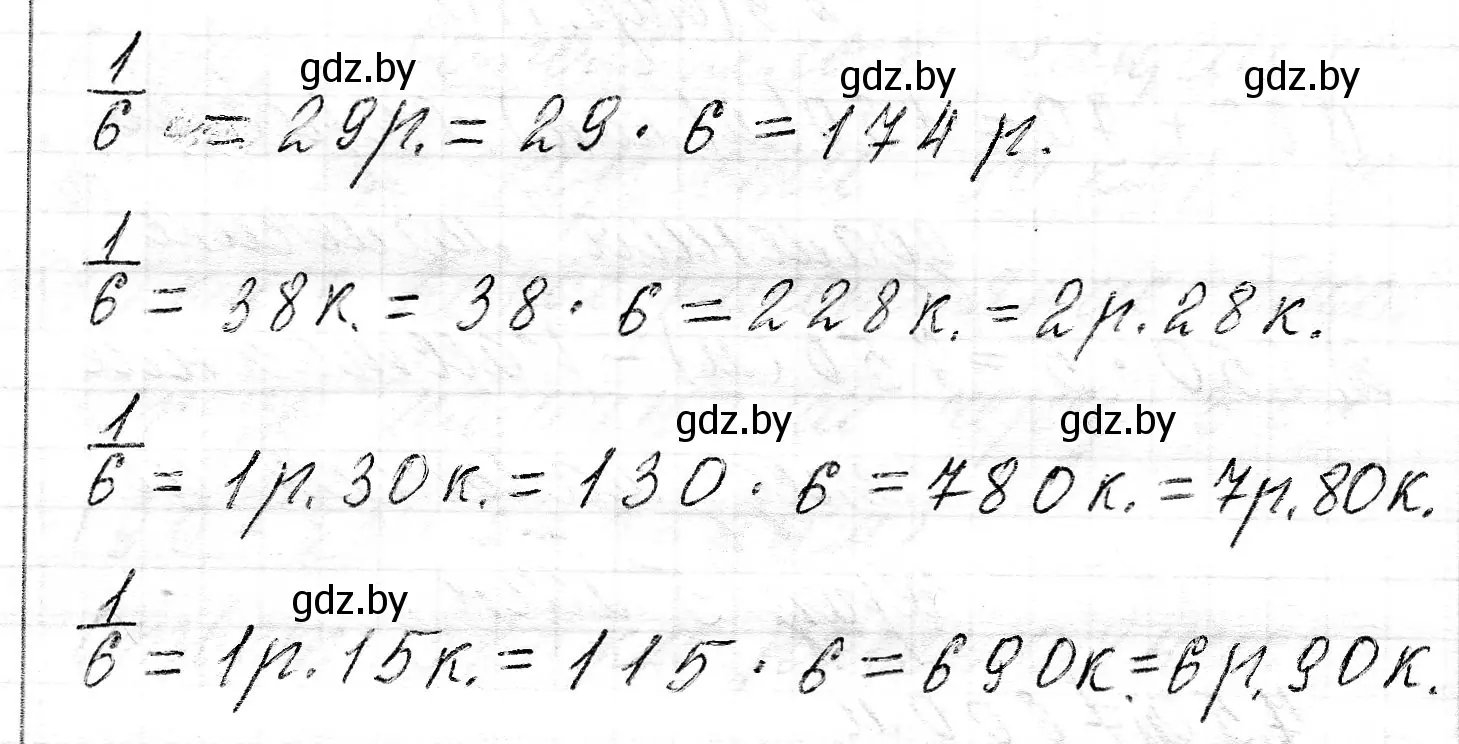 gdz.by gdz.by gdz.by
1/6 = 29р. = 29 · 6 = 174 р.
1/6 = 38к. = 38 · 6 = 228к. = 2р. 28к.
gdz.by gdz.by
1/6 = 1р. 30к. = 130 · 6 = 780к. = 7р. 80к.
gdz.by
1/6 = 1р. 15к. = 115 · 6 = 690к. = 6р. 90к.